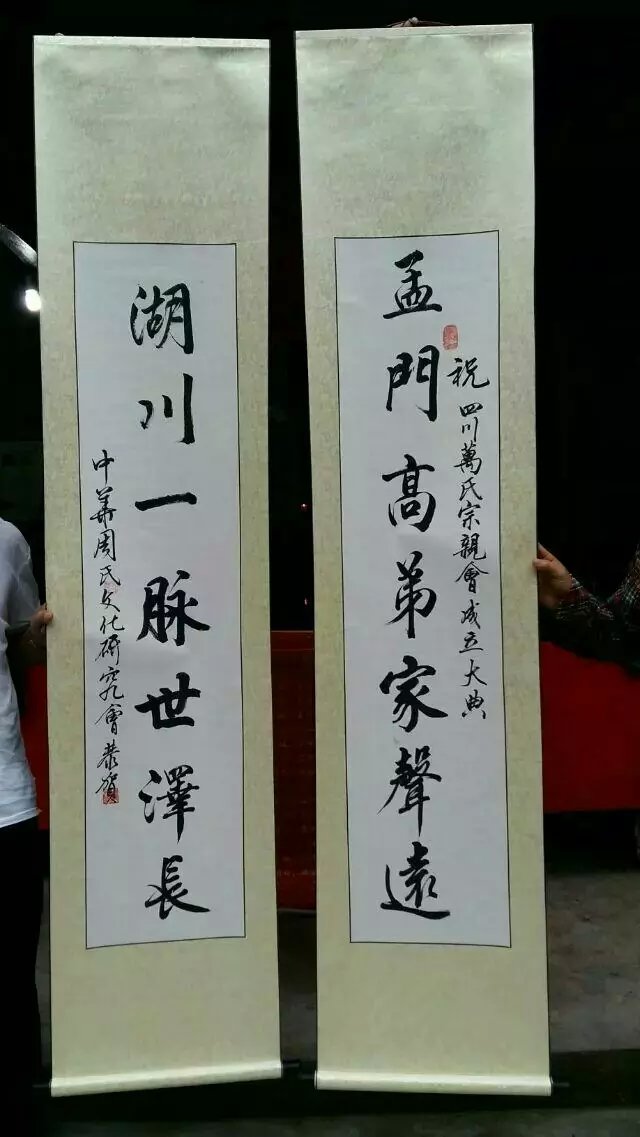 祝四川萬氏宗親會成立大典
孟門高弟家聲遠
湖川一脉世澤長
中華周氏文化研究會恭賀